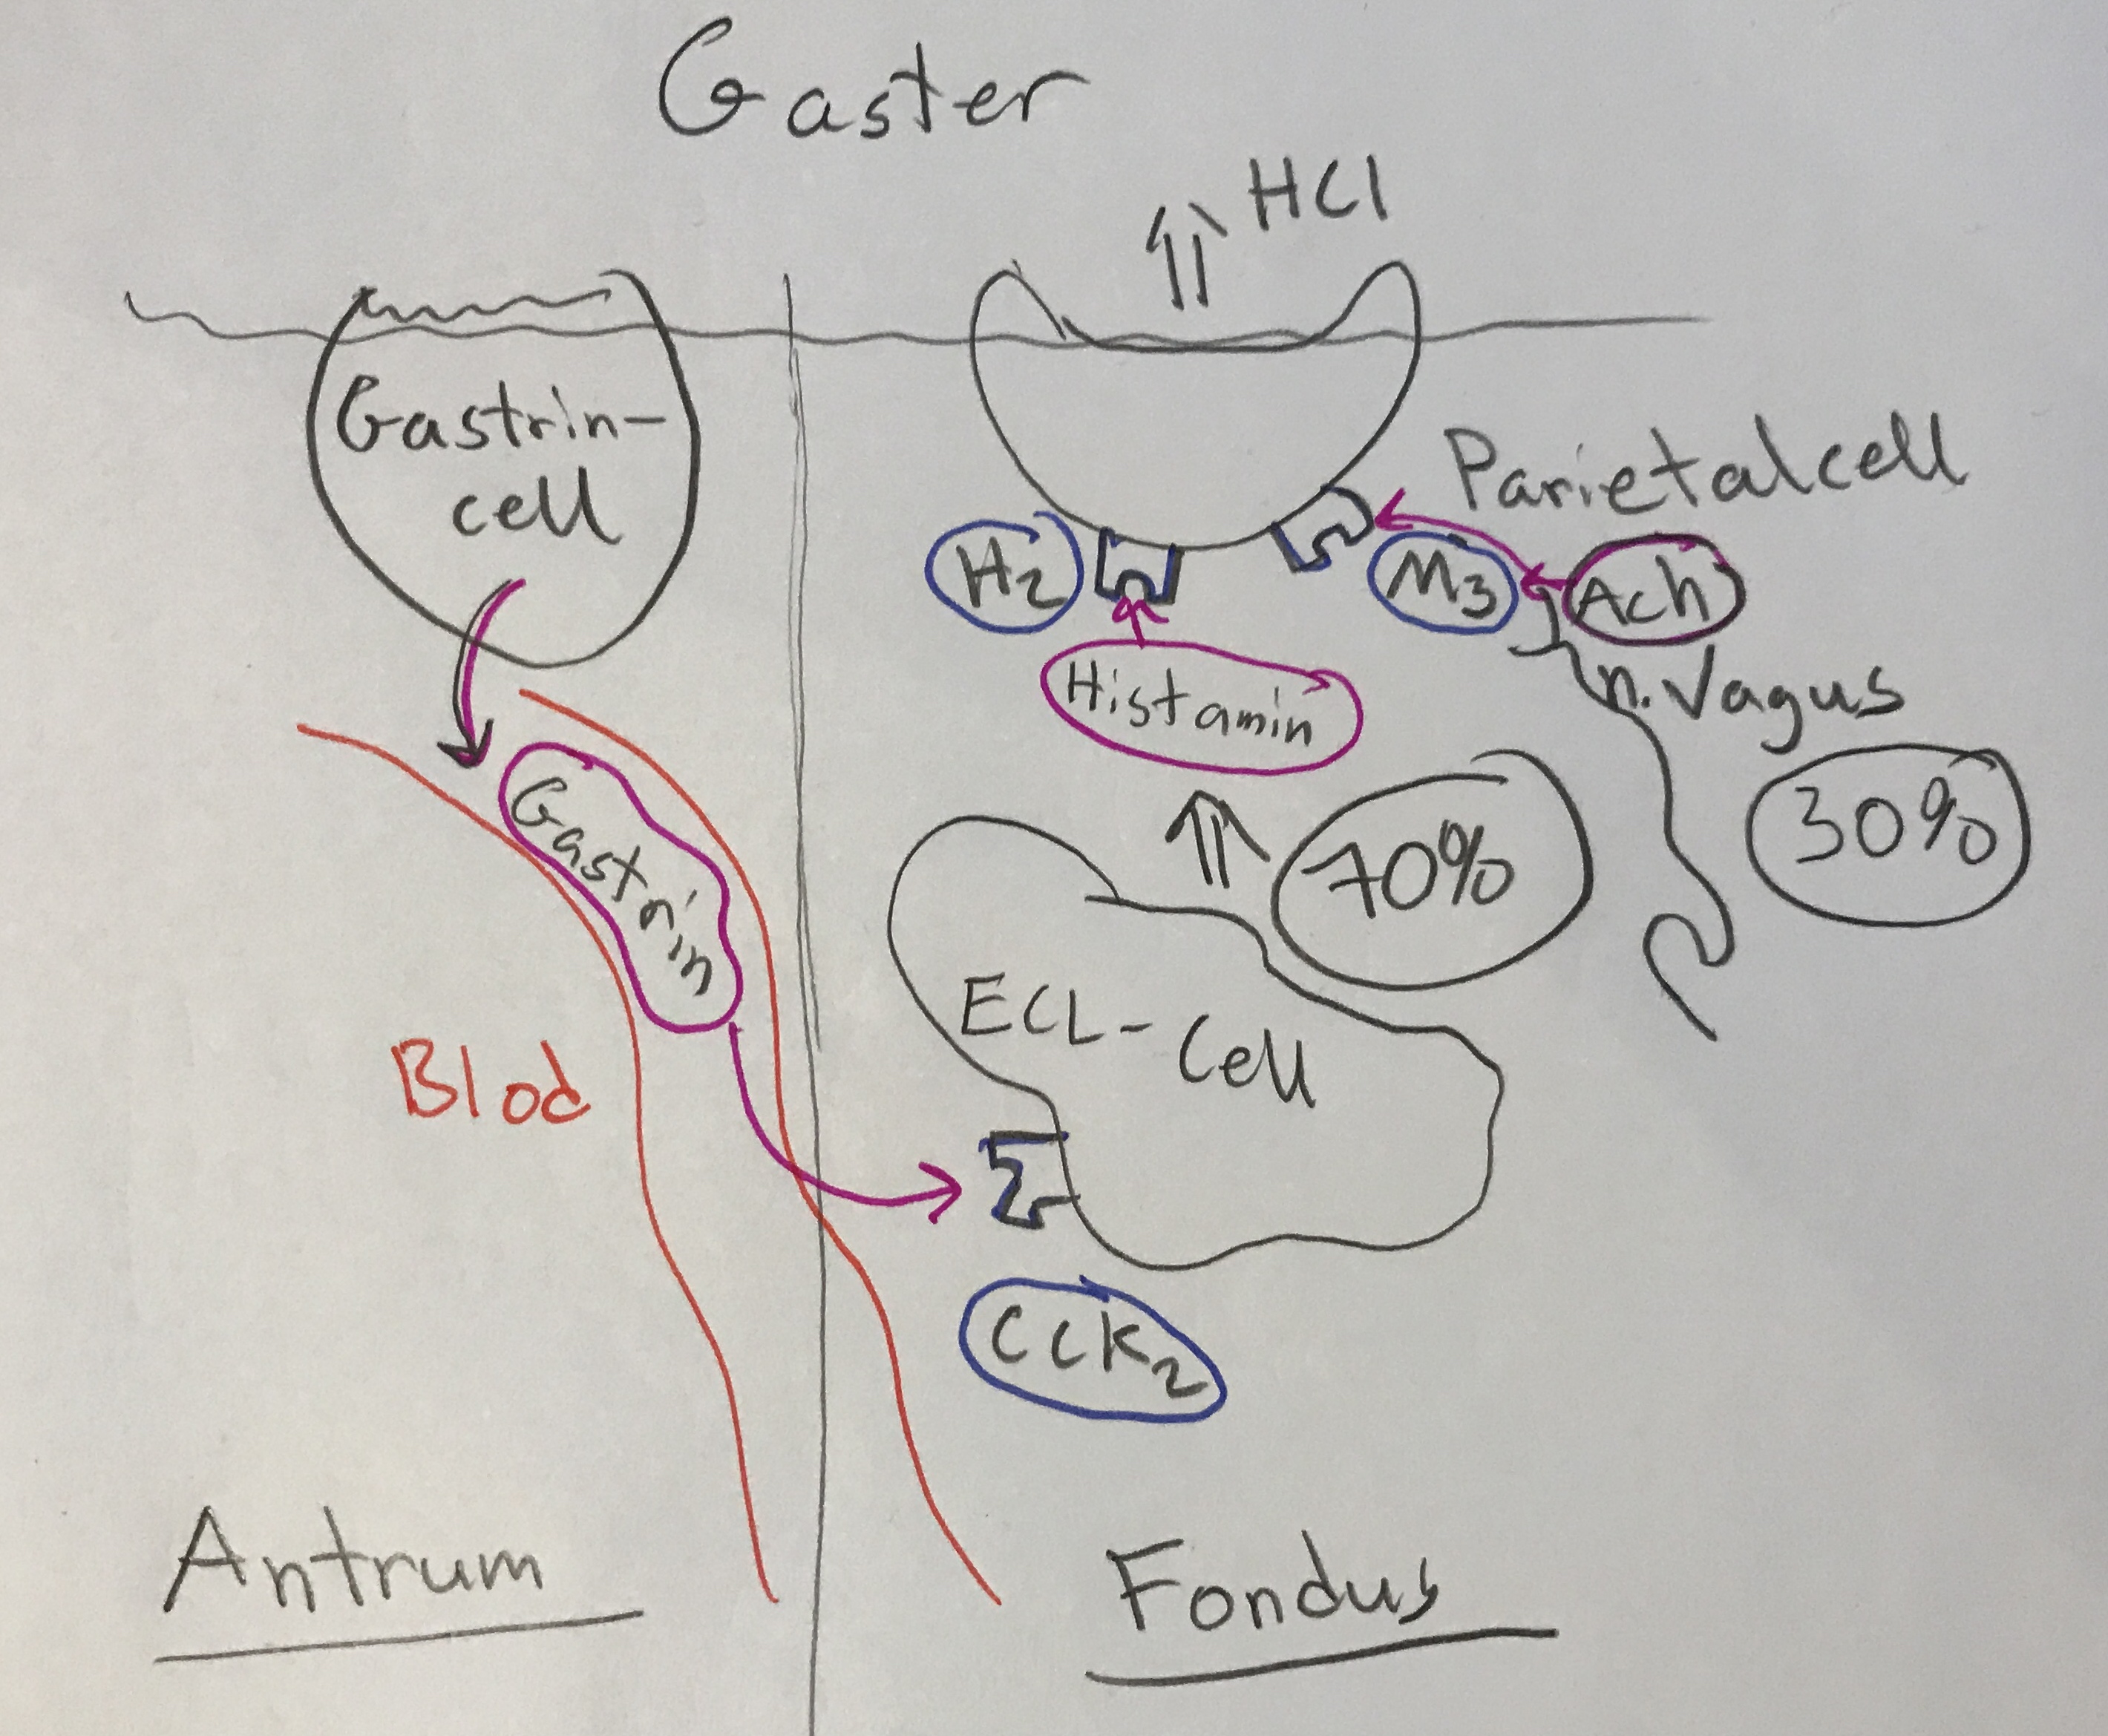 Gaster
HCl
Gastrin-
cell
Parietalcell
H2
M3
Ach
Histamin
n. Vagus
Gastrin
70%
30%
ECL-Cell
Blod
CCK2
Antrum
Fondus